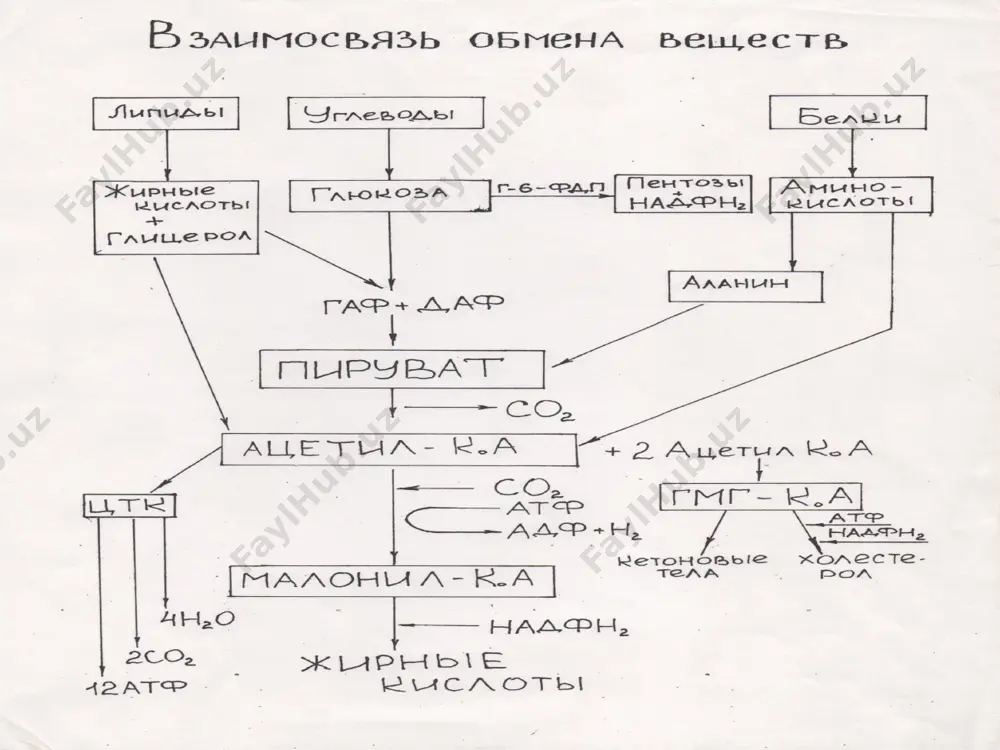 Взаимосвязь обмена веществ
Липиды
Углеводы
Белки
Жирные
кислоты
+
Глицерол
Глюкоза
Г-6-ФДП
Пентозы
+
НАДФН₂
Амино-
кислоты
Аланин
ГАФ + ДАФ
ПИРУВАТ
CO₂
АЦЕТИЛ-КоА
+ 2 Ацетил КоА
ЦТК
CO₂
АТФ
АДФ + H₂
ГМГ-КоА
АТФ
НАДФН₂
кетоновые
тела
холесте-
рол
МАЛОНИЛ-КоА
4H₂O
2CO₂
12АТФ
НАДФН₂
ЖИРНЫЕ
КИСЛОТЫ
FaylHub.uz
FaylHub.uz
FaylHub.uz
FaylHub.uz
FaylHub.uz